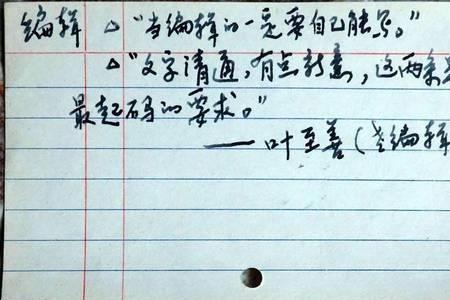 编辑 △“当编辑的一定要自己能写。”
△“文字清通，有点新意，这两条是
最起码的要求。”
——叶至善（老编辑